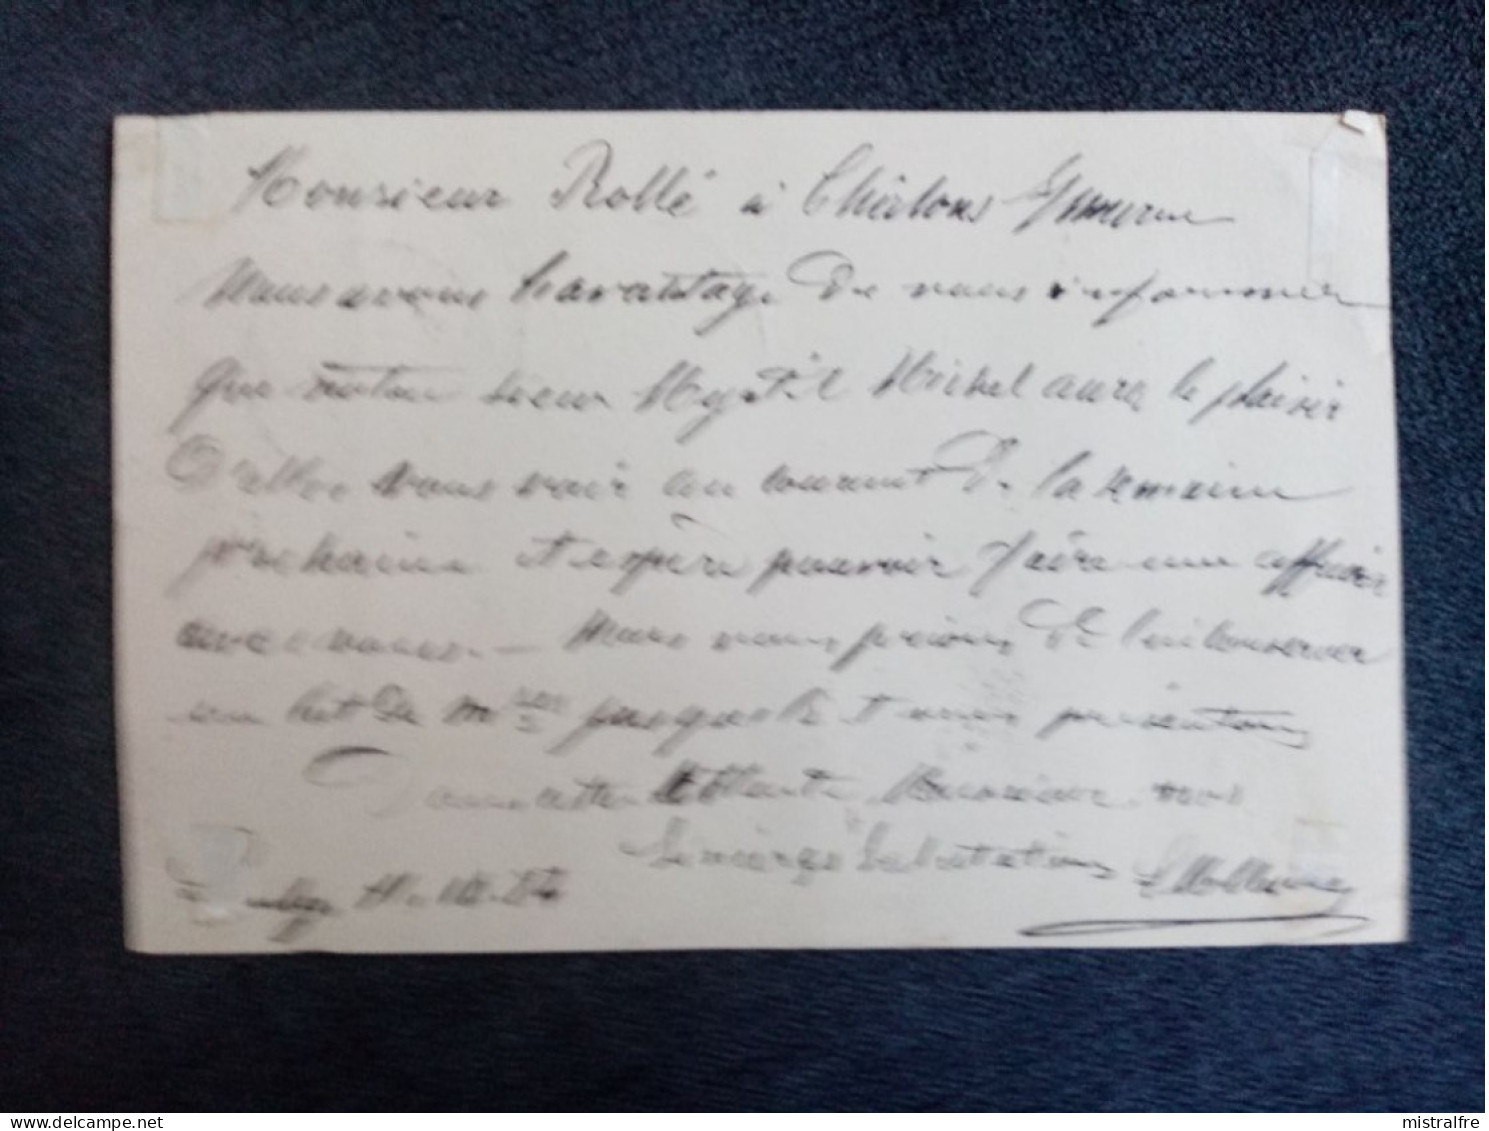 Monsieur Rollé à Châlons s/marne
Nous avons l'avantage de vous informer
que notre sieur Myrtil Michel aura le plaisir
d'aller vous voir au courant de la semaine
prochaine et espère pouvoir faire une affaire
avec vous. — Nous vous prions de lui conserver
un lot de m^ses jusque là et vous présentons
Dans cette attente Monsieur nos
sincères Salutations
mistralfre